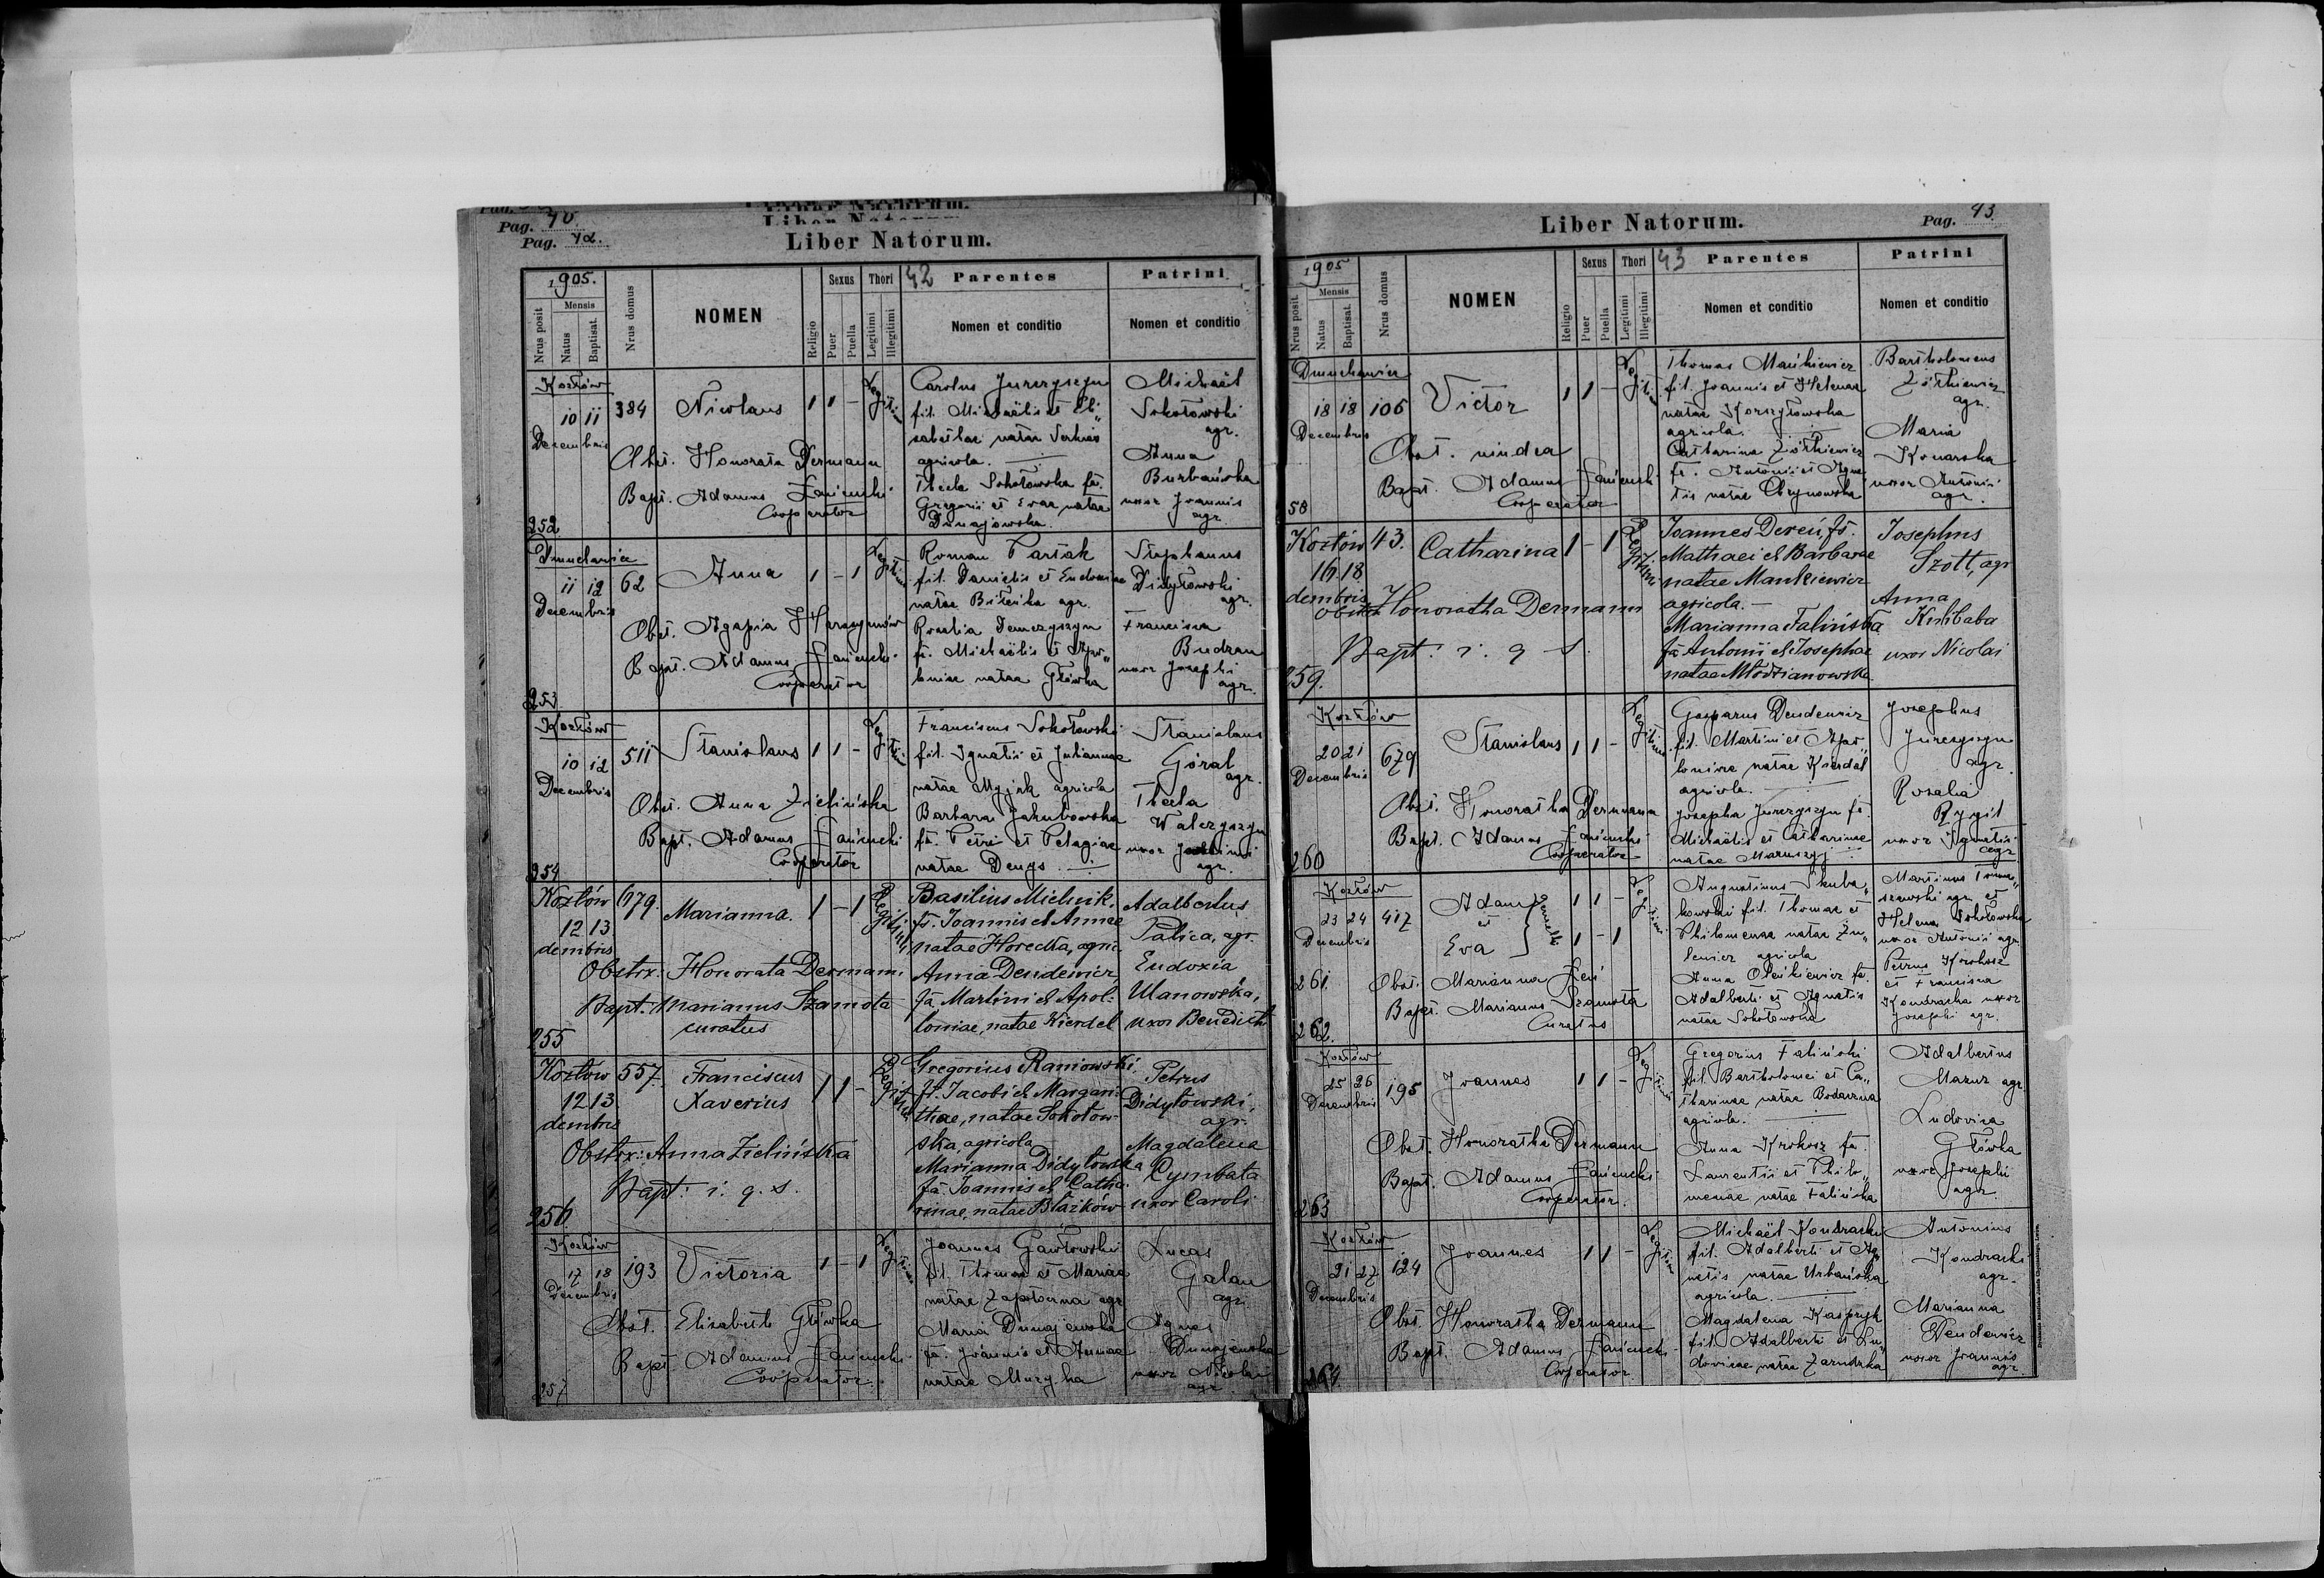 Pag. 40.
Pag. 42.
Liber Natorum.
1905.
42
Nrus posit
Mensis
Natus
Baptisat.
Nrus domus
NOMEN
Religio
Sexus
Puer
Puella
Thori
Legitimi
Illegitimi
Parentes
Nomen et conditio
Patrini
Nomen et conditio
Kozłów
10 11
Decembris
384
Nicolaus
1 1 -
Legitimi
Obst. Honorata Dermann
Bapt. Adamus Łańcucki
Cooperator
252
Carolus Jurczyszyn
fil. Michaëlis et Eli„
sabethae natae
agricola.
Thecla Sokołowska fa.
Gregorii et Evae natae
Dunajowska.
Michaël
Sokołowski
agr.
Anna
Burbańska
uxor Joannis
agr.
Dmuchawiec
11 12
Decembris
62
Anna
1 - 1
Legitimi
Obst. Agapia Harasymów
Bapt. Adamus Łańcucki
Cooperator
253
Roman Partak
fil. Danielis et Eudoxiae
natae agr.
Rosalia Demczyszyn
fa. Michaëlis et Apo„
loniae natae Główka
Stephanus
Didyłowski
agr.
Francisca
Budzan
uxor Josephi
agr.
Kozłów
10 12
Decembris
511
Stanislaus
1 1 -
Legitimi
Obst. Anna Zielińska
Bapt. Adamus Łańcucki
Cooperator
254
Franciscus Sokołowski
fil. Ignatii et Juliannae
natae agricola
Barbara Jakubowska
fa. Petri et Pelagiae
natae Denys.
Stanislaus
Góral
agr.
Thecla
Walczyszyn
uxor
agr.
Kozłów
12 13
dembris
679.
Marianna.
1 - 1
Legitimi
Obstrx: Honorata Dermann.
Bapt: Marianus Szamota
curatus
255
Basilius Michnik,
fs. Joannis et Annae
natae Horecka, agric.
Anna Dendewicz
fa Martini et Apol:
loniae, natae Kierdel
Adalbertus
Palica, agr.
Eudoxia
Ulanowska,
uxor Benedicti
Kozłow
12 13
dembris
557.
Franciscus
Xaverius
1 1 -
Legitimi
Obstrx: Anna Zielińska
Bapt: i. q. s.
256
Gregorius Raniowski,
fs. Jacobi et Marga:
thae, natae Sokołow-
ska, agricola
Marianna Didyłowska
fa. Joannis et Catha:
rinae, natae Błażków
Petrus
Didyłowski,
agr.
Magdalena
Cymbała
uxor Caroli
Kozłów
17 18
Decembris
193
Victoria
1 - 1
Legitimi
Obst. Elisabeth Główka
Bapt. Adamus Łańcucki
Cooperator
257
Joannes Gawłowski
fil. Thomae et Mariae
natae agr
Maria Dunajewska
fa. Joannis et Annae
natae Muzyka
Lucas
Galan
agr.
Agnes
Dunajewska
uxor Nicolai
agr
Liber Natorum.
Pag. 43
1905
43
Nrus posit.
Mensis
Natus
Baptisat.
Nrus domus
NOMEN
Religio
Sexus
Puer
Puella
Thori
Legitimi
Illegitimi
Parentes
Nomen et conditio
Patrini
Nomen et conditio
Dmuchawiec
18 18
Decembris
106
Victor
1 1 -
Legitimi
Obst.
Bapt. Adamus Łańcucki
Cooperator
58
Thomas Mańkiewicz
fil. Joannis et Helenae
natae Korzyłowska
agricola.
Catharina Żółkiewicz
fa. Antonii et Agne
tis natae Chrynowska
Bartholomeus
Żółkiewicz
agr.
Maria
Konarska
uxor Antonii
agr.
Kozłów
16 18
dembris
43.
Catharina
1 - 1
Legitimi
Obstrx Honoratha Dermann
Bapt: i. q s.
259.
Joannes Dereń, fs.
Mathaei et Barbarae
natae Mankiewicz
agricola. -
Marianna Falińska
fa Antonii et Josephae
natae Młodzianowska.
Josephus
Szott, agr
Anna
Kulibaba
uxor Nicolai
Kozłów
20 21
Decembris
679
Stanislaus
1 1 -
Legitimi
Obst. Honoratha Dermann
Bapt. Adamus Łańcucki
Cooperator
260
Gasparus Dendewicz
fil. Martini et Apo„
loniae natae Kierdal
agricola.
Josepha Jurczyszyn fa.
Michaëlis et Catharinae
natae Maruszyj
Josephus
Jurczyszyn
agr.
Rosalia
Rygit
uxor Ignatii
agr
Kozłów
23 24
Decembris
417
Adam
et
Eva
gemelli
1 1 -
1 - 1
Legitimi
261.
Obst. Marianna
Bapt. Marianus Szamota
Curatus
262.
Augustinus Skuba„
kowski fil. Thomae et
Philomenae natae Zu„
lewicz agricola
Anna Oleśkiewicz fa.
Adalberti et Agnetis
natae Sokołowska
Martinus Toma„
szewski agr. et
Helena Sokołowska
uxor Antonii agr.
Petrus Krokosz
et Francisca
Kondracka uxor
Josephi agr.
Kozłów
25 26
Decembris
195
Joannes
1 1 -
Legitimi
Obst. Honoratha Dermann
Bapt. Adamus Łańcucki
Cooperator.
263
Gregorius Faliński
fil. Bartholomei et Ca„
tharinae natae Bodaczna
agricola.
Anna Krokosz fa.
Laurentii et Philo„
menae natae Falińska
Adalbertus
Mazur agr.
Ludovica
Główka
uxor Josephi
agr.
Kozłów
21 27
Decembris
124
Joannes
1 1 -
Legitimi
Obst. Honoratha Dermann
Bapt. Adamus Łańcucki
Cooperator
264
Michaël Kondracki
fil. Adalberti et Ag„
netis natae Urbańska
agricola.
Magdalena Kasprzyk
fil. Adalberti et Lu„
dovicae natae Zarudzka
Antonius
Kondracki
agr.
Marianna
Dendewicz
uxor Joannis
agr.